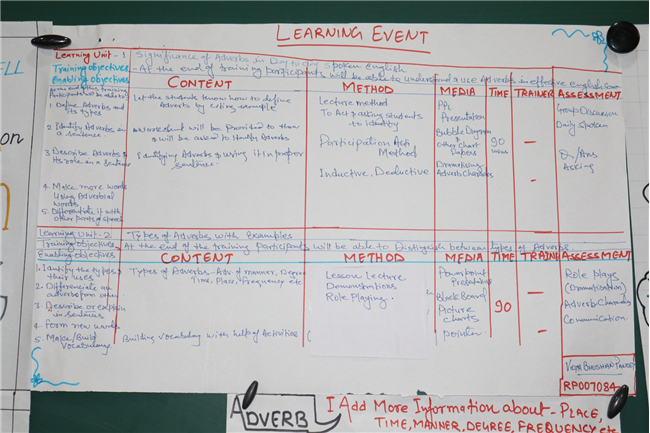 LEARNING EVENT
Learning Unit - 1 Significance of Adverbs in Day today Spoken English
Training objectives - At the end of training participants will be able to understand & use Adverbs in effective english
Enabling objectives
CONTENT METHOD MEDIA TIME TRAINER ASSESSMENT
1. Define Adverbs and its types
2. Identify Adverbs in a sentence
3. Describe Adverbs & its role in a sentence
4. Make more words
Using Adverbial words
5. Differentiate it with
other parts of speech
Let the students know how to define
Adverbs by citing example
worksheet will be provided to them
& will be asked to identify Adverbs
Identifying Adverbs & using it in proper
sentence.
Lecture method
To Act & asking students
to identify
Participation
Method
Inductive, Deductive
PPt
Presentation
Bubble Diagram
& other Chart
Papers
Adverb Charades
90
Group Discussion
Daily spoken
Qn/Ans
Asking
Learning Unit - 2 Types of Adverbs with Examples
Training objectives At the end of the training participants will be able to Distinguish between types of Adverbs
Enabling objectives
CONTENT METHOD MEDIA TIME TRAINER ASSESSMENT
1. Identify the types &
their uses
2. Differentiate an
adverb from other
3. Describe or explain
in sentences
4. Form new words
5. Make/Build
Vocabulary
Types of Adverbs - Adv. of manner, Degree
Time, Place, Frequency etc
Building vocabulary with help of Activities
Lesson Lecture
Demonstrations
Role Playing.
Powerpoint
Black Board
Picture
charts
pointer
90
Role plays
(Dramatisation)
Adverb Charades
Communication.
VIJAY BHUSHAN PANDEY
RP007084
ADVERB
I Add More Information about - PLACE,
TIME, MANNER, DEGREE, FREQUENCY etc